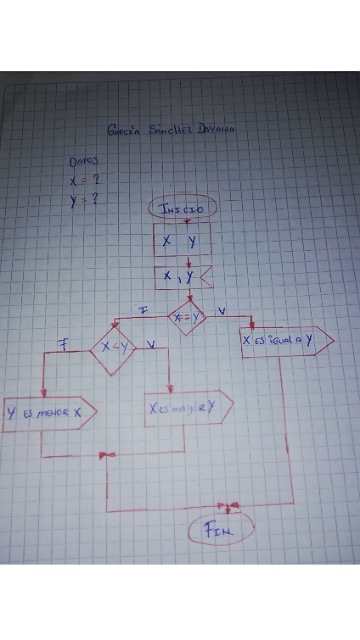 García Sánchez Dayana
Datos
X = ?
Y = ?
INICIO
X Y
X , Y
X = Y
F
V
X < Y
F
V
X es igual a Y
Y es menor X
X es mayor Y
FIN